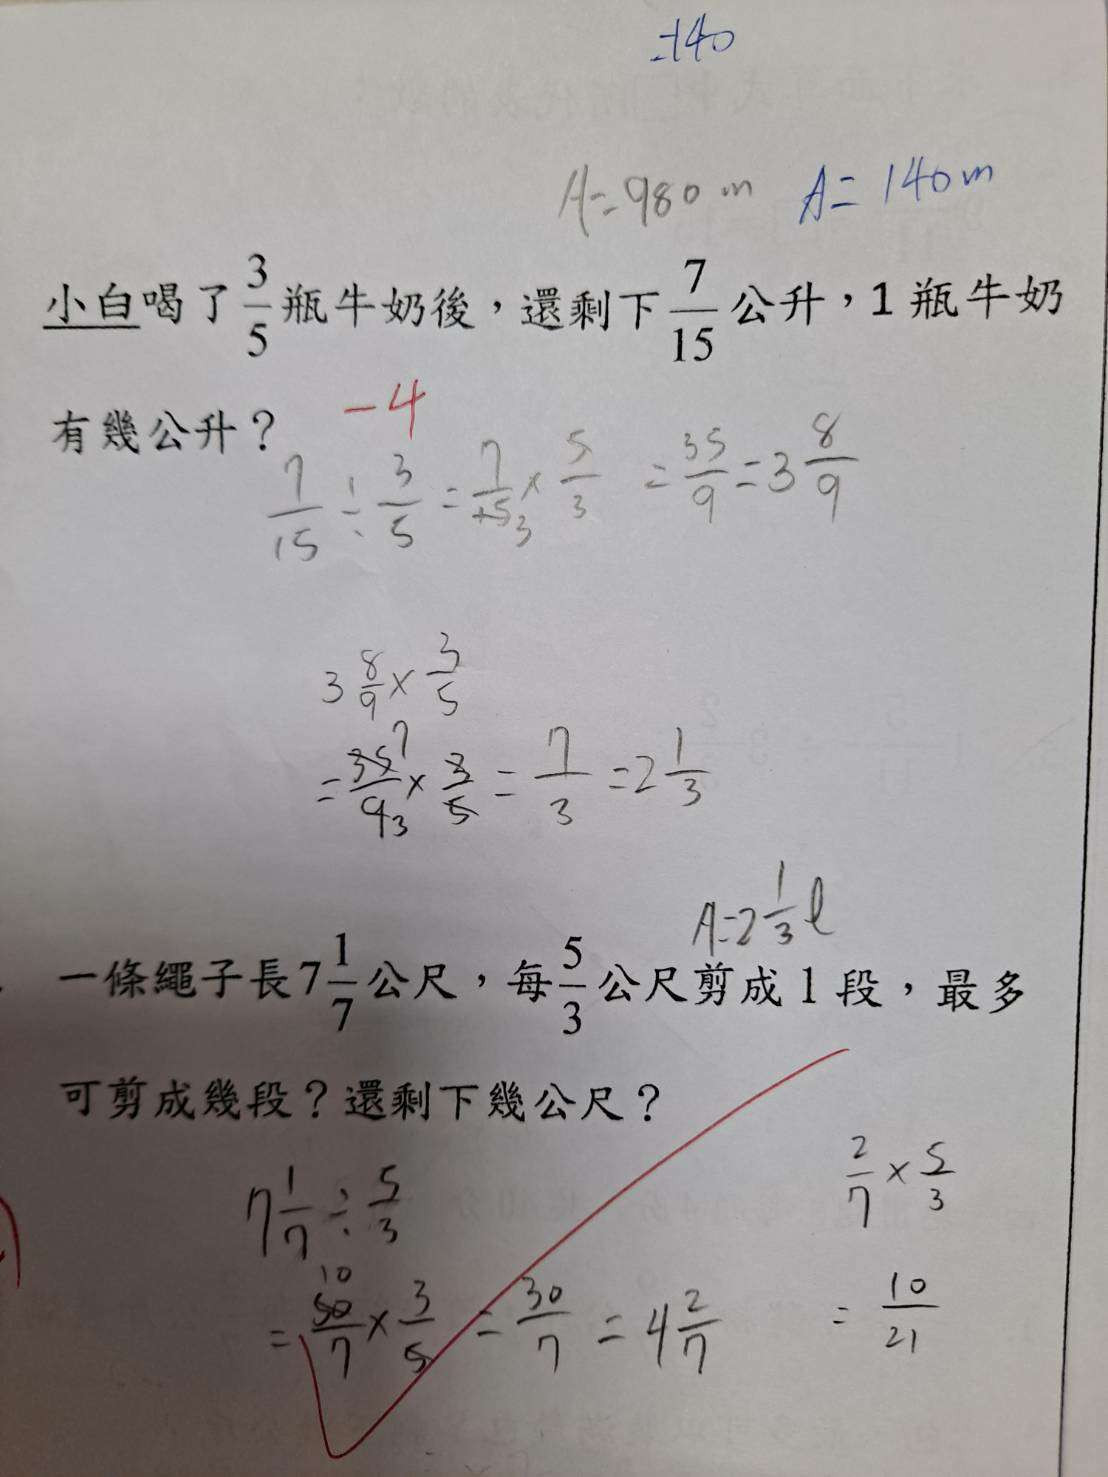 =140
A=980 m A=140m
小白喝了3/5瓶牛奶後，還剩下7/15公升，1瓶牛奶
有幾公升？
-4
7/15÷3/5=7/15 3×5/3=35/9=3 8/9
3 8/9×3/5
=35/9 7 3×3/5=7/3=2 1/3
A=2 1/3 l
一條繩子長7 1/7公尺，每5/3公尺剪成1段，最多
可剪成幾段？還剩下幾公尺？
7 1/7÷5/3
2/7×5/3
10
=50/7×3/5=30/7=4 2/7
=10/21